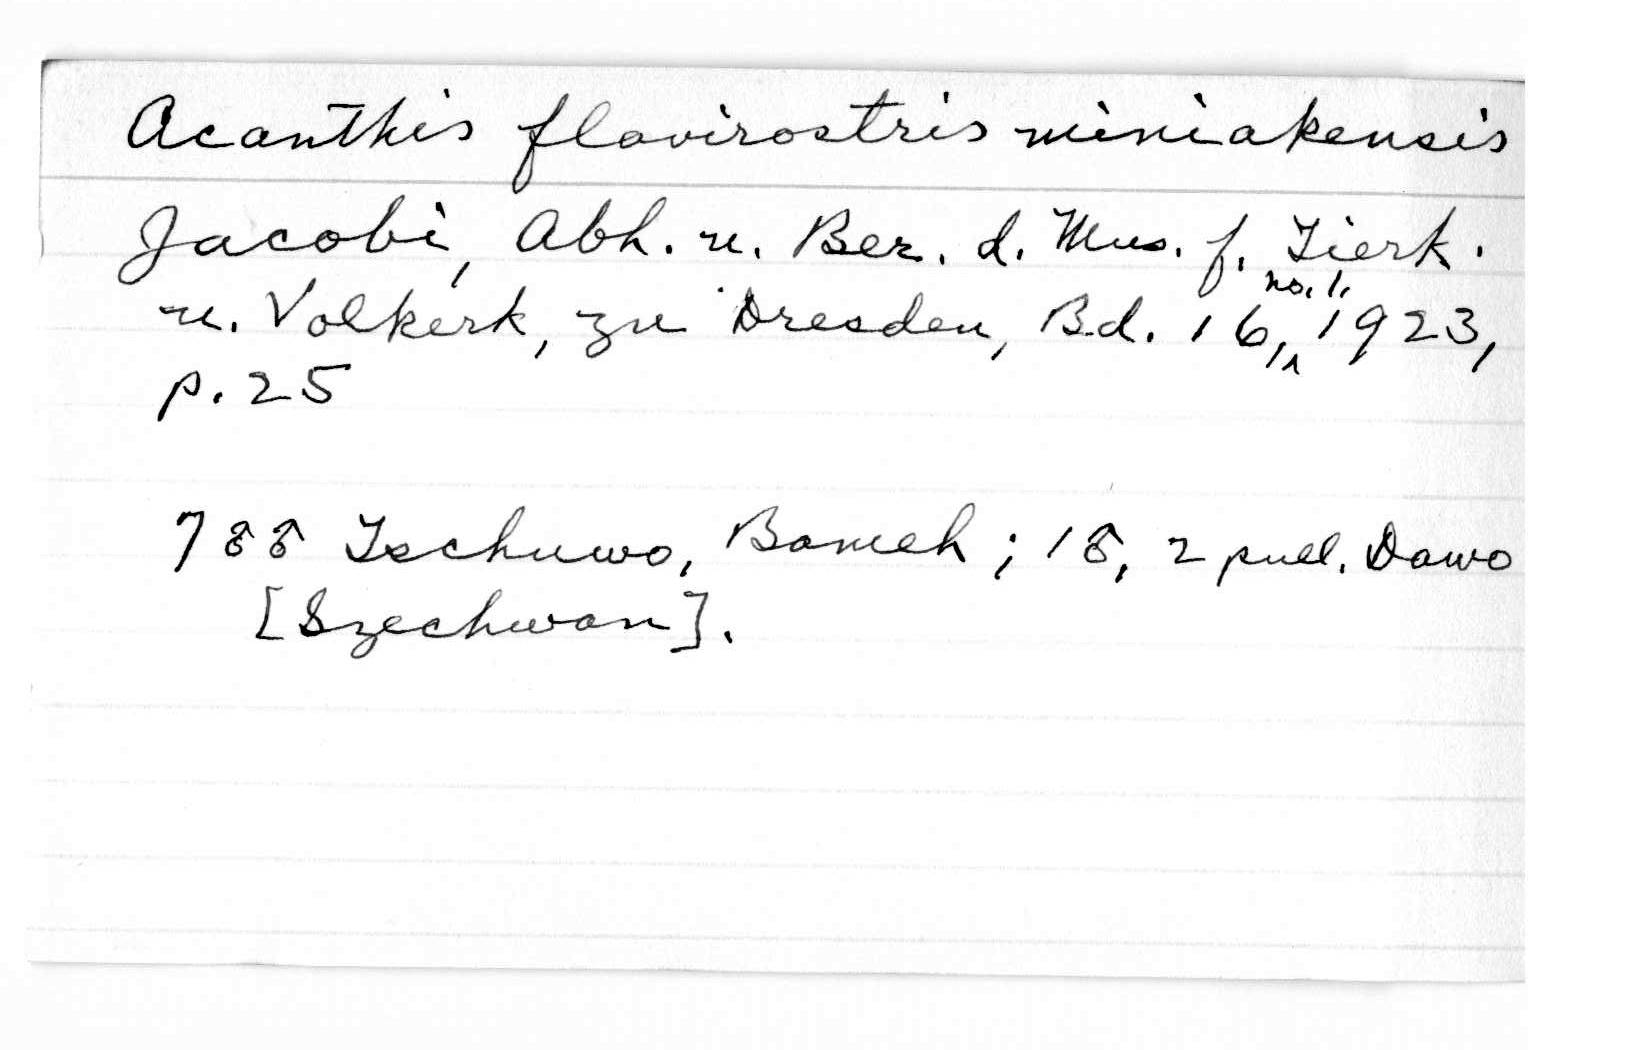 Acanthis flavirostris miniakensis
Jacobi, Abh. u. Ber. d. Mus. f. Tierk.
u. Volkerk, zu Dresden, Bd. 16, no. 1, 1923,
p. 25
7 ♂♂ Tschuwo, Bameh; 1♂, 2 pull. Dawo
[Szechwan].